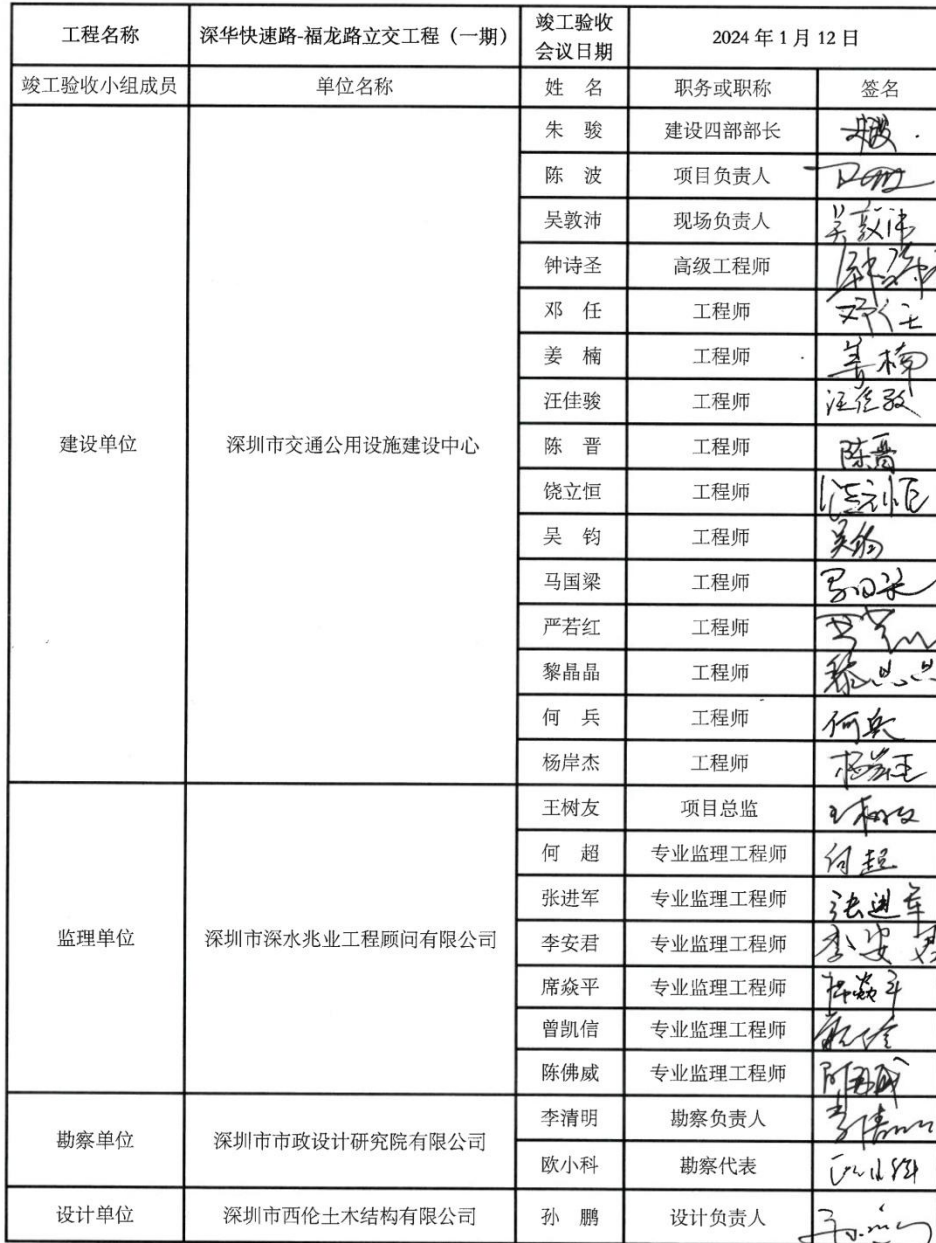 工程名称 深华快速路-福龙路立交工程（一期） 竣工验收会议日期 2024年1月12日
竣工验收小组成员 单位名称 姓 名 职务或职称 签名
建设单位 深圳市交通公用设施建设中心
朱 骏 建设四部部长
陈 波 项目负责人
吴敦沛 现场负责人 吴敦沛
钟诗圣 高级工程师
邓 任 工程师 邓任
姜 楠 工程师 姜楠
汪佳骏 工程师 汪佳骏
陈 晋 工程师 陈晋
饶立恒 工程师 饶立恒
吴 钧 工程师 吴钧
马国梁 工程师 马国梁
严若红 工程师
黎晶晶 工程师 黎晶晶
何 兵 工程师 何兵
杨岸杰 工程师 杨岸杰
监理单位 深圳市深水兆业工程顾问有限公司
王树友 项目总监 王树友
何 超 专业监理工程师 何超
张进军 专业监理工程师 张进军
李安君 专业监理工程师 李安君
席焱平 专业监理工程师 席焱平
曾凯信 专业监理工程师
陈佛威 专业监理工程师
勘察单位 深圳市市政设计研究院有限公司
李清明 勘察负责人
欧小科 勘察代表
设计单位 深圳市西伦土木结构有限公司
孙 鹏 设计负责人